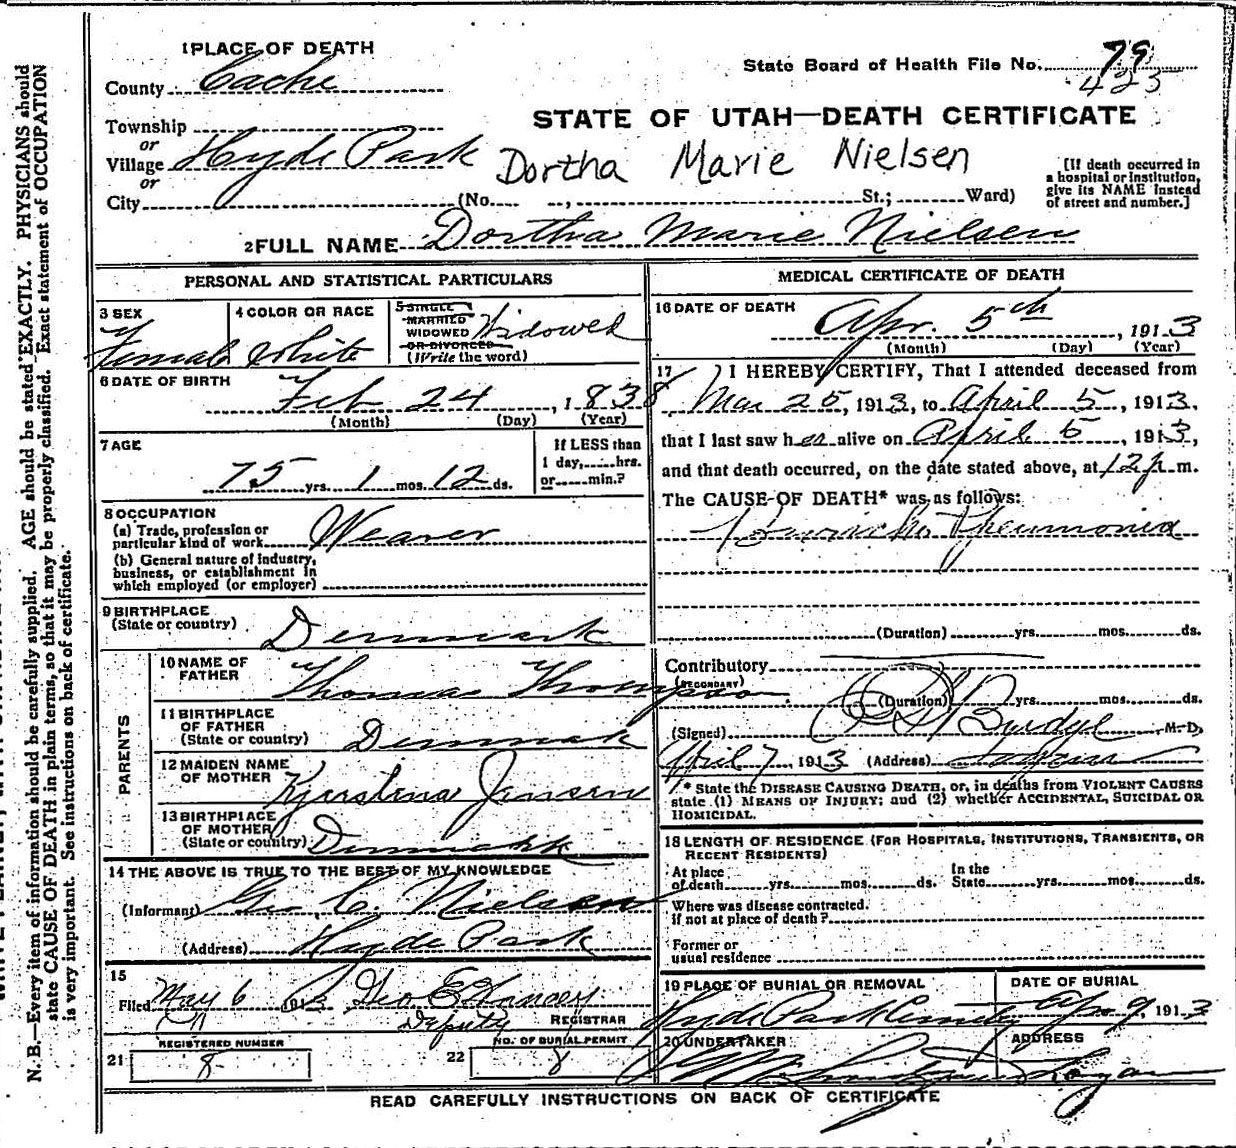 1 PLACE OF DEATH
County Cache
State Board of Health File No. 79
423
Township
or
Village Hyde Park
or
City (No. , St.; Ward)
STATE OF UTAH—DEATH CERTIFICATE
Dortha Marie Nielsen
[If death occurred in
a hospital or institution,
give its NAME instead
of street and number.]
2 FULL NAME Dortha Marie Nielsen
PERSONAL AND STATISTICAL PARTICULARS
3 SEX
Female
4 COLOR OR RACE
White
5 SINGLE
MARRIED
WIDOWED
OR DIVORCED
(Write the word)
Widowed
6 DATE OF BIRTH
Feb 24, 1838
(Month) (Day) (Year)
7 AGE
75 yrs. 1 mos. 12 ds.
If LESS than
1 day, hrs.
or min.?
8 OCCUPATION
(a) Trade, profession or
particular kind of work Weaver
(b) General nature of industry,
business, or establishment in
which employed (or employer)
9 BIRTHPLACE
(State or country) Denmark
PARENTS
10 NAME OF
FATHER Thomas Thompson
11 BIRTHPLACE
OF FATHER
(State or country) Denmark
12 MAIDEN NAME
OF MOTHER Kjerstena Jensen
13 BIRTHPLACE
OF MOTHER
(State or country) Denmark
14 THE ABOVE IS TRUE TO THE BEST OF MY KNOWLEDGE
(Informant) Geo C. Nielsen
(Address) Hyde Park
15
Filed May 6 1913 Geo E
Deputy REGISTRAR
REGISTERED NUMBER
21 8
NO. OF BURIAL PERMIT
22 8
MEDICAL CERTIFICATE OF DEATH
16 DATE OF DEATH
Apr. 5th, 1913
(Month) (Day) (Year)
17 I HEREBY CERTIFY, That I attended deceased from
Mar 25, 1913, to April 5, 1913,
that I last saw her alive on April 5, 1913,
and that death occurred, on the date stated above, at 12 p. m.
The CAUSE OF DEATH* was as follows:
Pneumonia
(Duration) yrs. mos. ds.
Contributory
(SECONDARY)
(Duration) yrs. mos. ds.
(Signed) M.D.
April 7, 1913 (Address) Logan
* State the DISEASE CAUSING DEATH, or, in deaths from VIOLENT CAUSES
state (1) MEANS OF INJURY; and (2) whether ACCIDENTAL, SUICIDAL OR
HOMICIDAL.
18 LENGTH OF RESIDENCE (FOR HOSPITALS, INSTITUTIONS, TRANSIENTS, OR
RECENT RESIDENTS)
At place
of death yrs. mos. ds.
In the
State yrs. mos. ds.
Where was disease contracted.
if not at place of death?
Former or
usual residence
19 PLACE OF BURIAL OR REMOVAL
Hyde Park
DATE OF BURIAL
Apr 9, 1913
20 UNDERTAKER
ADDRESS
Logan
READ CAREFULLY INSTRUCTIONS ON BACK OF CERTIFICATE
N. B.—Every item of information should be carefully supplied. AGE should be stated EXACTLY. PHYSICIANS should
state CAUSE OF DEATH in plain terms, so that it may be properly classified. Exact statement of OCCUPATION
is very important. See instructions on back of certificate.